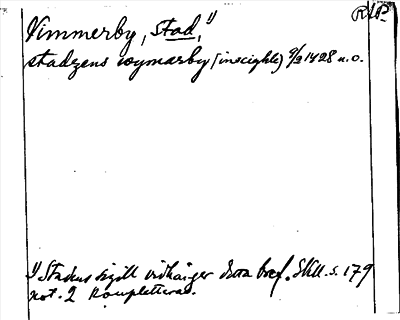 RAP.
Vimmerby, stad,¹⁾
stadzens wymarby (inscighle) 9/2 1428 n.o.
¹⁾ Stadens sigill vidhänger detta bref. SHU. s. 179
not. 2 Kompletteras.